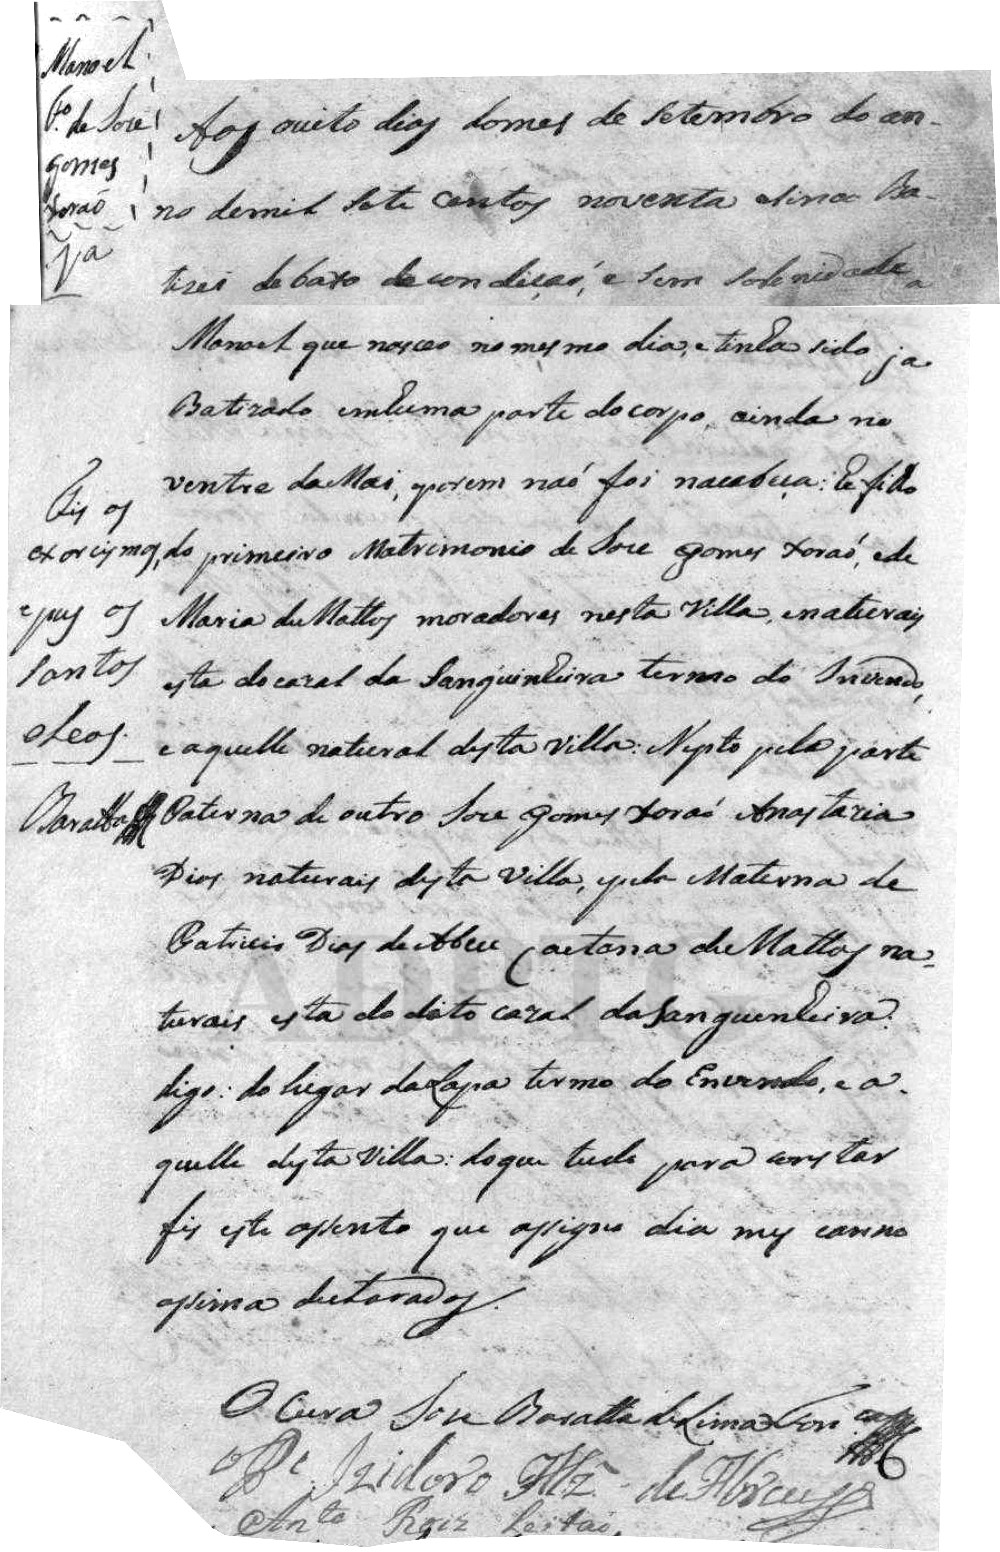 Manoel
f.º de Joze
gomes
Xoraó
Ja
Aos outo dias domes de Setembro do an-
no demil Sete Centos noventa esinco Ba-
tizei debaxo de condiçaó, e sem solenidade a
Manoel que nasceo no mesmo dia, e tinha sido ja
Batizado emhuma parte docorpo, ainda no
ventre da Mai, porem naó foi nacabeça: he filho
do primeiro Matrimonio de Joze gomes Xoraó, ede
Maria de Mattos moradores nesta Villa, enaturais
esta docazal da Sanguinheira termo do Invendo,
e aquelle natural desta Villa: Nepto pela parte
Paterna de outro Joze gomes Xoraó Anastazia
Dias naturais desta Villa, epela Materna de
Patricio Dias de Abreu Caetana de Mattos na-
turais esta do dito cazal da Sanguenheira:
digo: do lugar da Lapa termo do Envendo, e a-
quelle desta Villa: doque tudo para constar
fis este assento que assigno dia mes eanno
assima declarados.
Fis os
exorcismos,
epus os
santos
oleos.
Baratta
O Cura Joze Baratta de Lima
o P.e Izidoro Frz de Abreu
An.to Roiz Leitaó
ADPTG